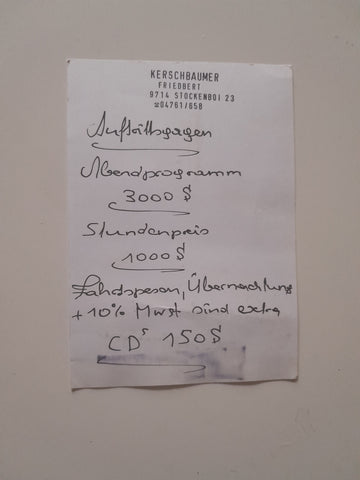 KERSCHBAUMER
FRIEDBERT
9714 STOCKENBOI 23
☎04761/658
Auftrittsgagen
Abendprogramm
3000 $
Stundenpreis
1000 $
Fahrtspesen, Übernachtung
+ 10% Mwst sind extra
CDs 150 $